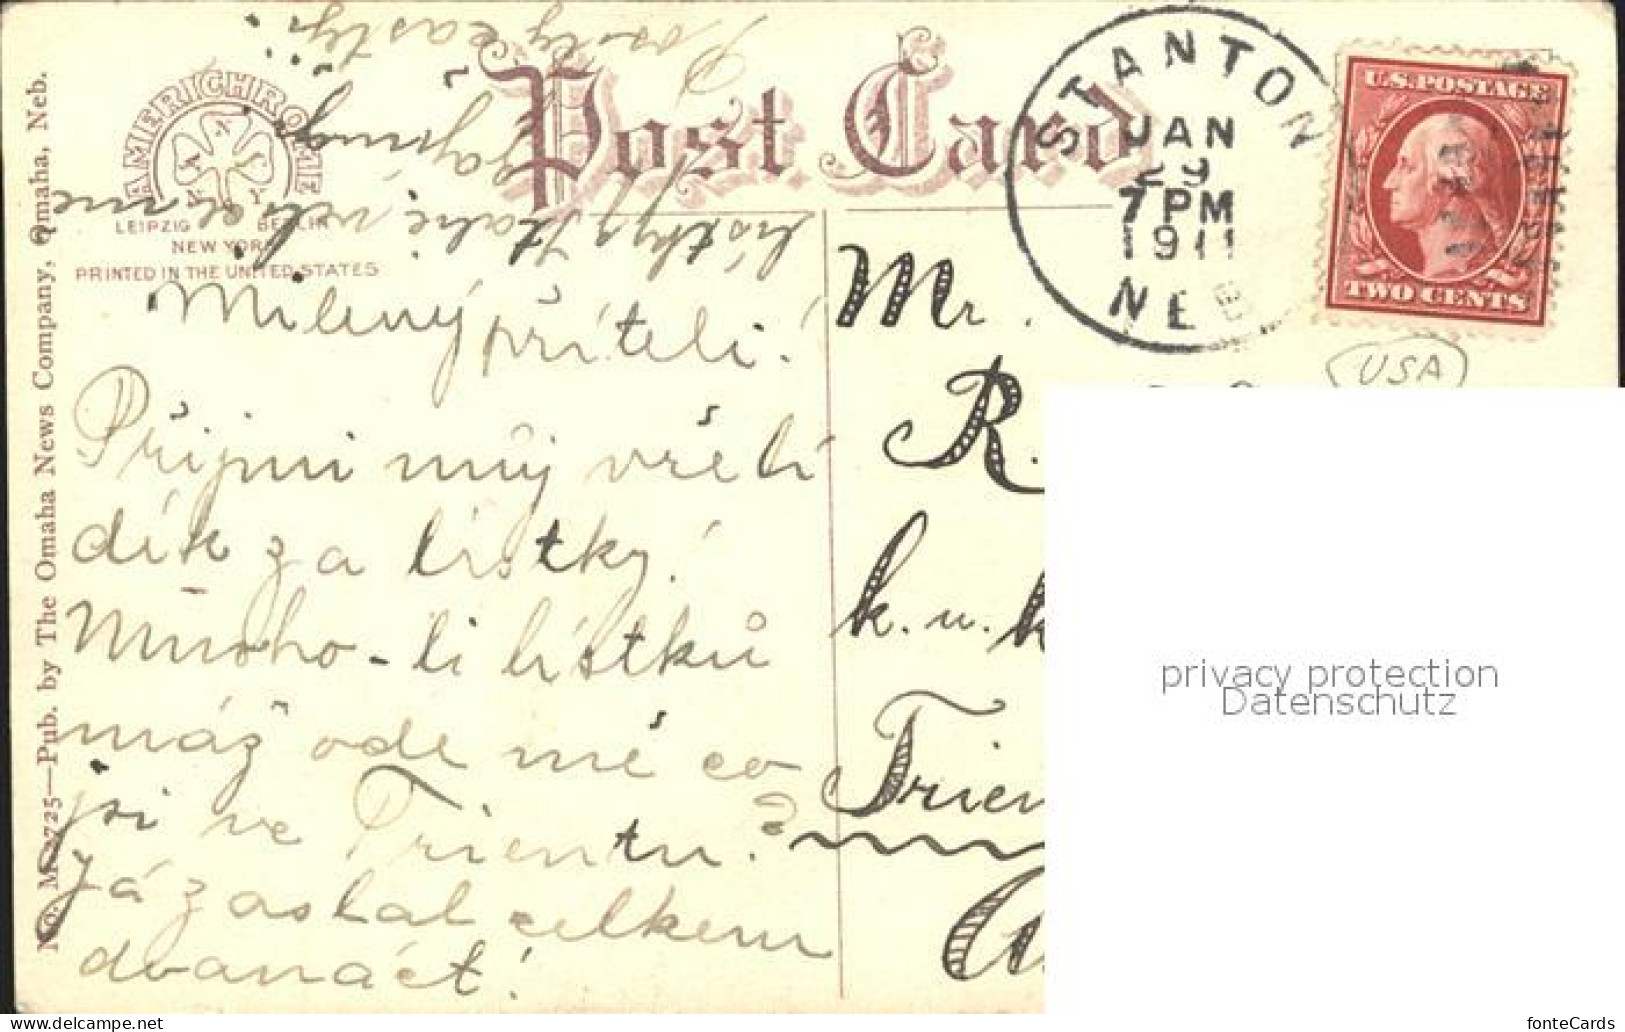 No. M 1725—Pub. by The Omaha News Company, Omaha, Neb.
AMERICHROME
LEIPZIG BERLIN
NEW YORK
PRINTED IN THE UNITED STATES
Post Card
STANTON
JAN
29
7 PM
1911
NEB
U.S. POSTAGE
TWO CENTS
USA
Milený příteli!
Přijmi můj vřelí
dík za lístky!
Mnoho-li lístků
máž ode mé co
jsi ve Trientu?
Já zaslal celkem
dvanáct!
lístky
Mr.
R.
k. u. k
Trien
privacy protection
Datenschutz
www.delcampe.net
fonteCards